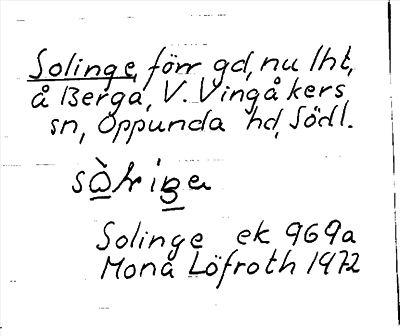 Solinge, förr gd, nu lht,
å Berga, V. Vingåkers
sn, Oppunda hd, Södl.
Solinge ek 969a
Mona Löfroth 1972